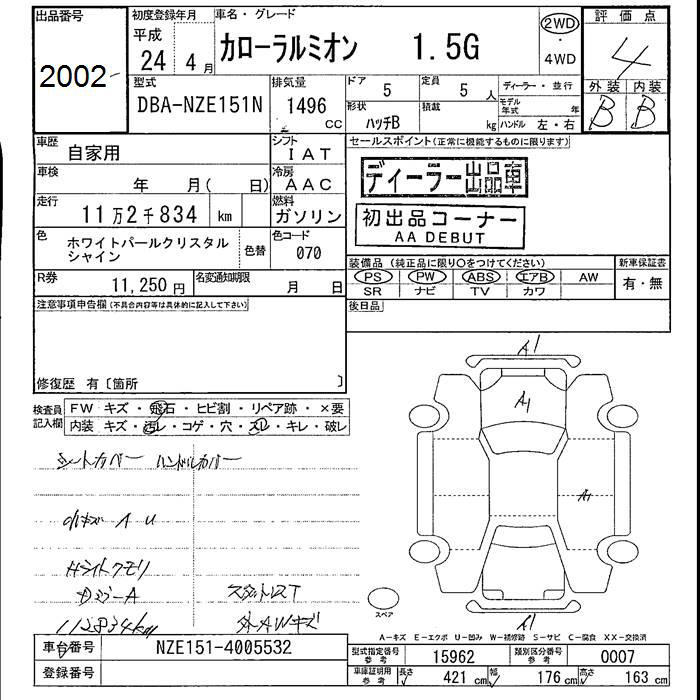 出品番号 初度登録年月 車名・グレード 評価点
平成
2002 24年 4月 カローラルミオン 1.5G 2WD・4WD 4
型式 排気量 ドア 定員 ディーラー・並行 外装 内装
DBA-NZE151N 1496CC 5 5人 モデル年式 年 B B
形状 積載
ハッチB kg ハンドル 左・右
車歴 自家用 シフト IAT セールスポイント(正常に機能するものに限ります)
車検 年 月( 日) 冷房 AAC ディーラー出品車
走行 11万2千834 km 燃料 ガソリン 初出品コーナー
AA DEBUT
色 ホワイトパールクリスタルシャイン 色替 色コード 070
装備品(純正品に限り○をつけてください) 新車保証書
R券 11,250円 名変通知期限 月 日 PS PW ABS エアB AW 有・無
SR ナビ TV カワ
注意事項申告欄(不具合内容等は具体的に記入して下さい) 後日品
修復歴 有〔箇所 〕
検査員記入欄 FW キズ・飛石・ヒビ割・リペア跡・×要
内装 キズ・汚レ・コゲ・穴・スレ・キレ・破レ
シートカバー ハンドルカバー
小キズ A U
Hライトクモリ
112834km 外AWキズ
A1
A1
A1
A1
スペア
A-キズ E-エクボ U-凹み W-補修跡 S-サビ C-腐食 XX-交換済
車台番号 NZE151-4005532 型式指定番号 参考 15962 類別区分番号 参考 0007
登録番号 車庫証明用 参考 長さ 421cm 幅 176cm 高さ 163cm